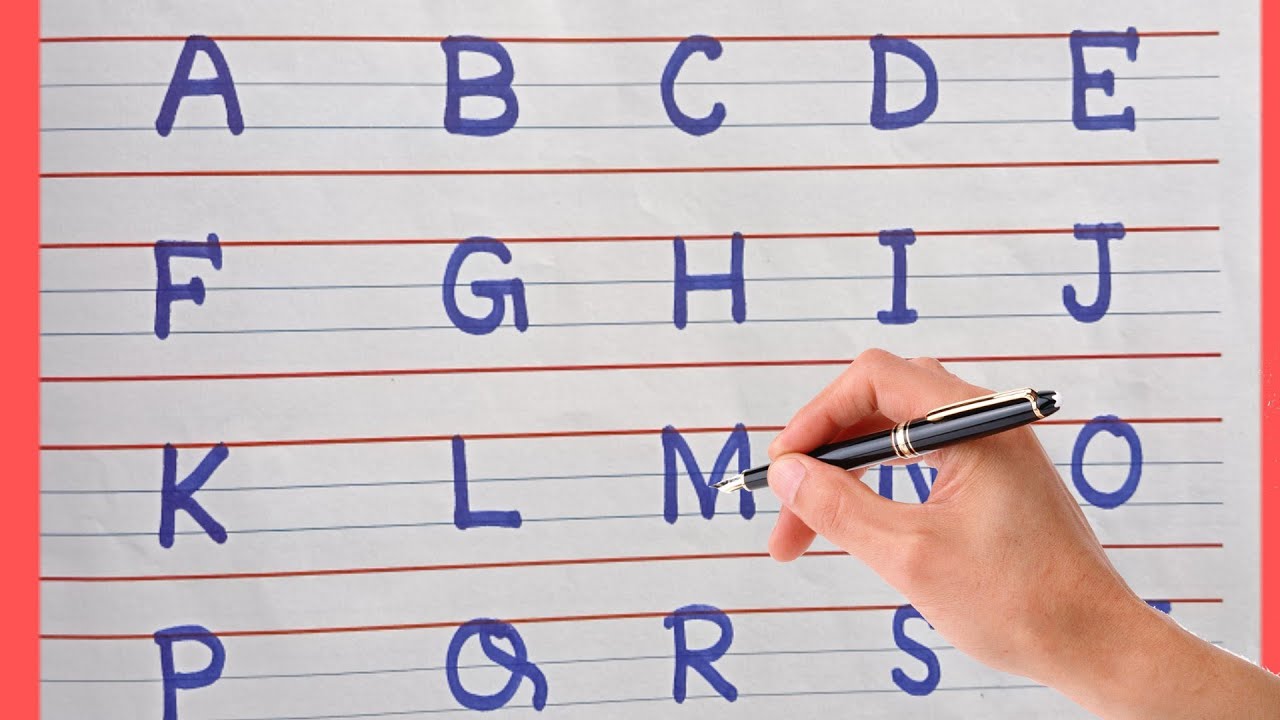 A B C D E
F G H I J
K L M N O
P Q R S